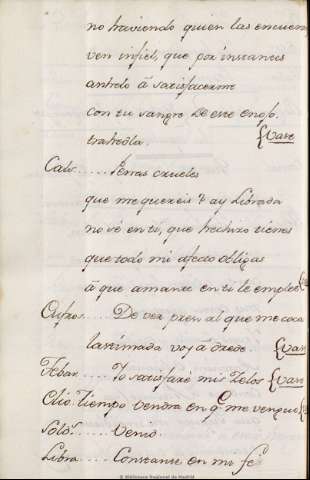 no haviendo quien las encuen
ven infiel, que por instantes
anhelo â satisfacerme
con tu sangre de este enojo.
trahedla. {vase
Calv......Penas crueles
que me quereis? ay Librada
no vé en tí, que hechizo tienes
que todo mi afecto obligas
â que amante en ti le emplee
......De ver pren al que me
lastimada voy â {vase
Febar....Yo satisfaré mis Zelos {vase
Clio. Tiempo vendra en q.e me vengue
Solo!......Venid.
Libra.....Constante en mi fe
Biblioteca Regional de Madrid